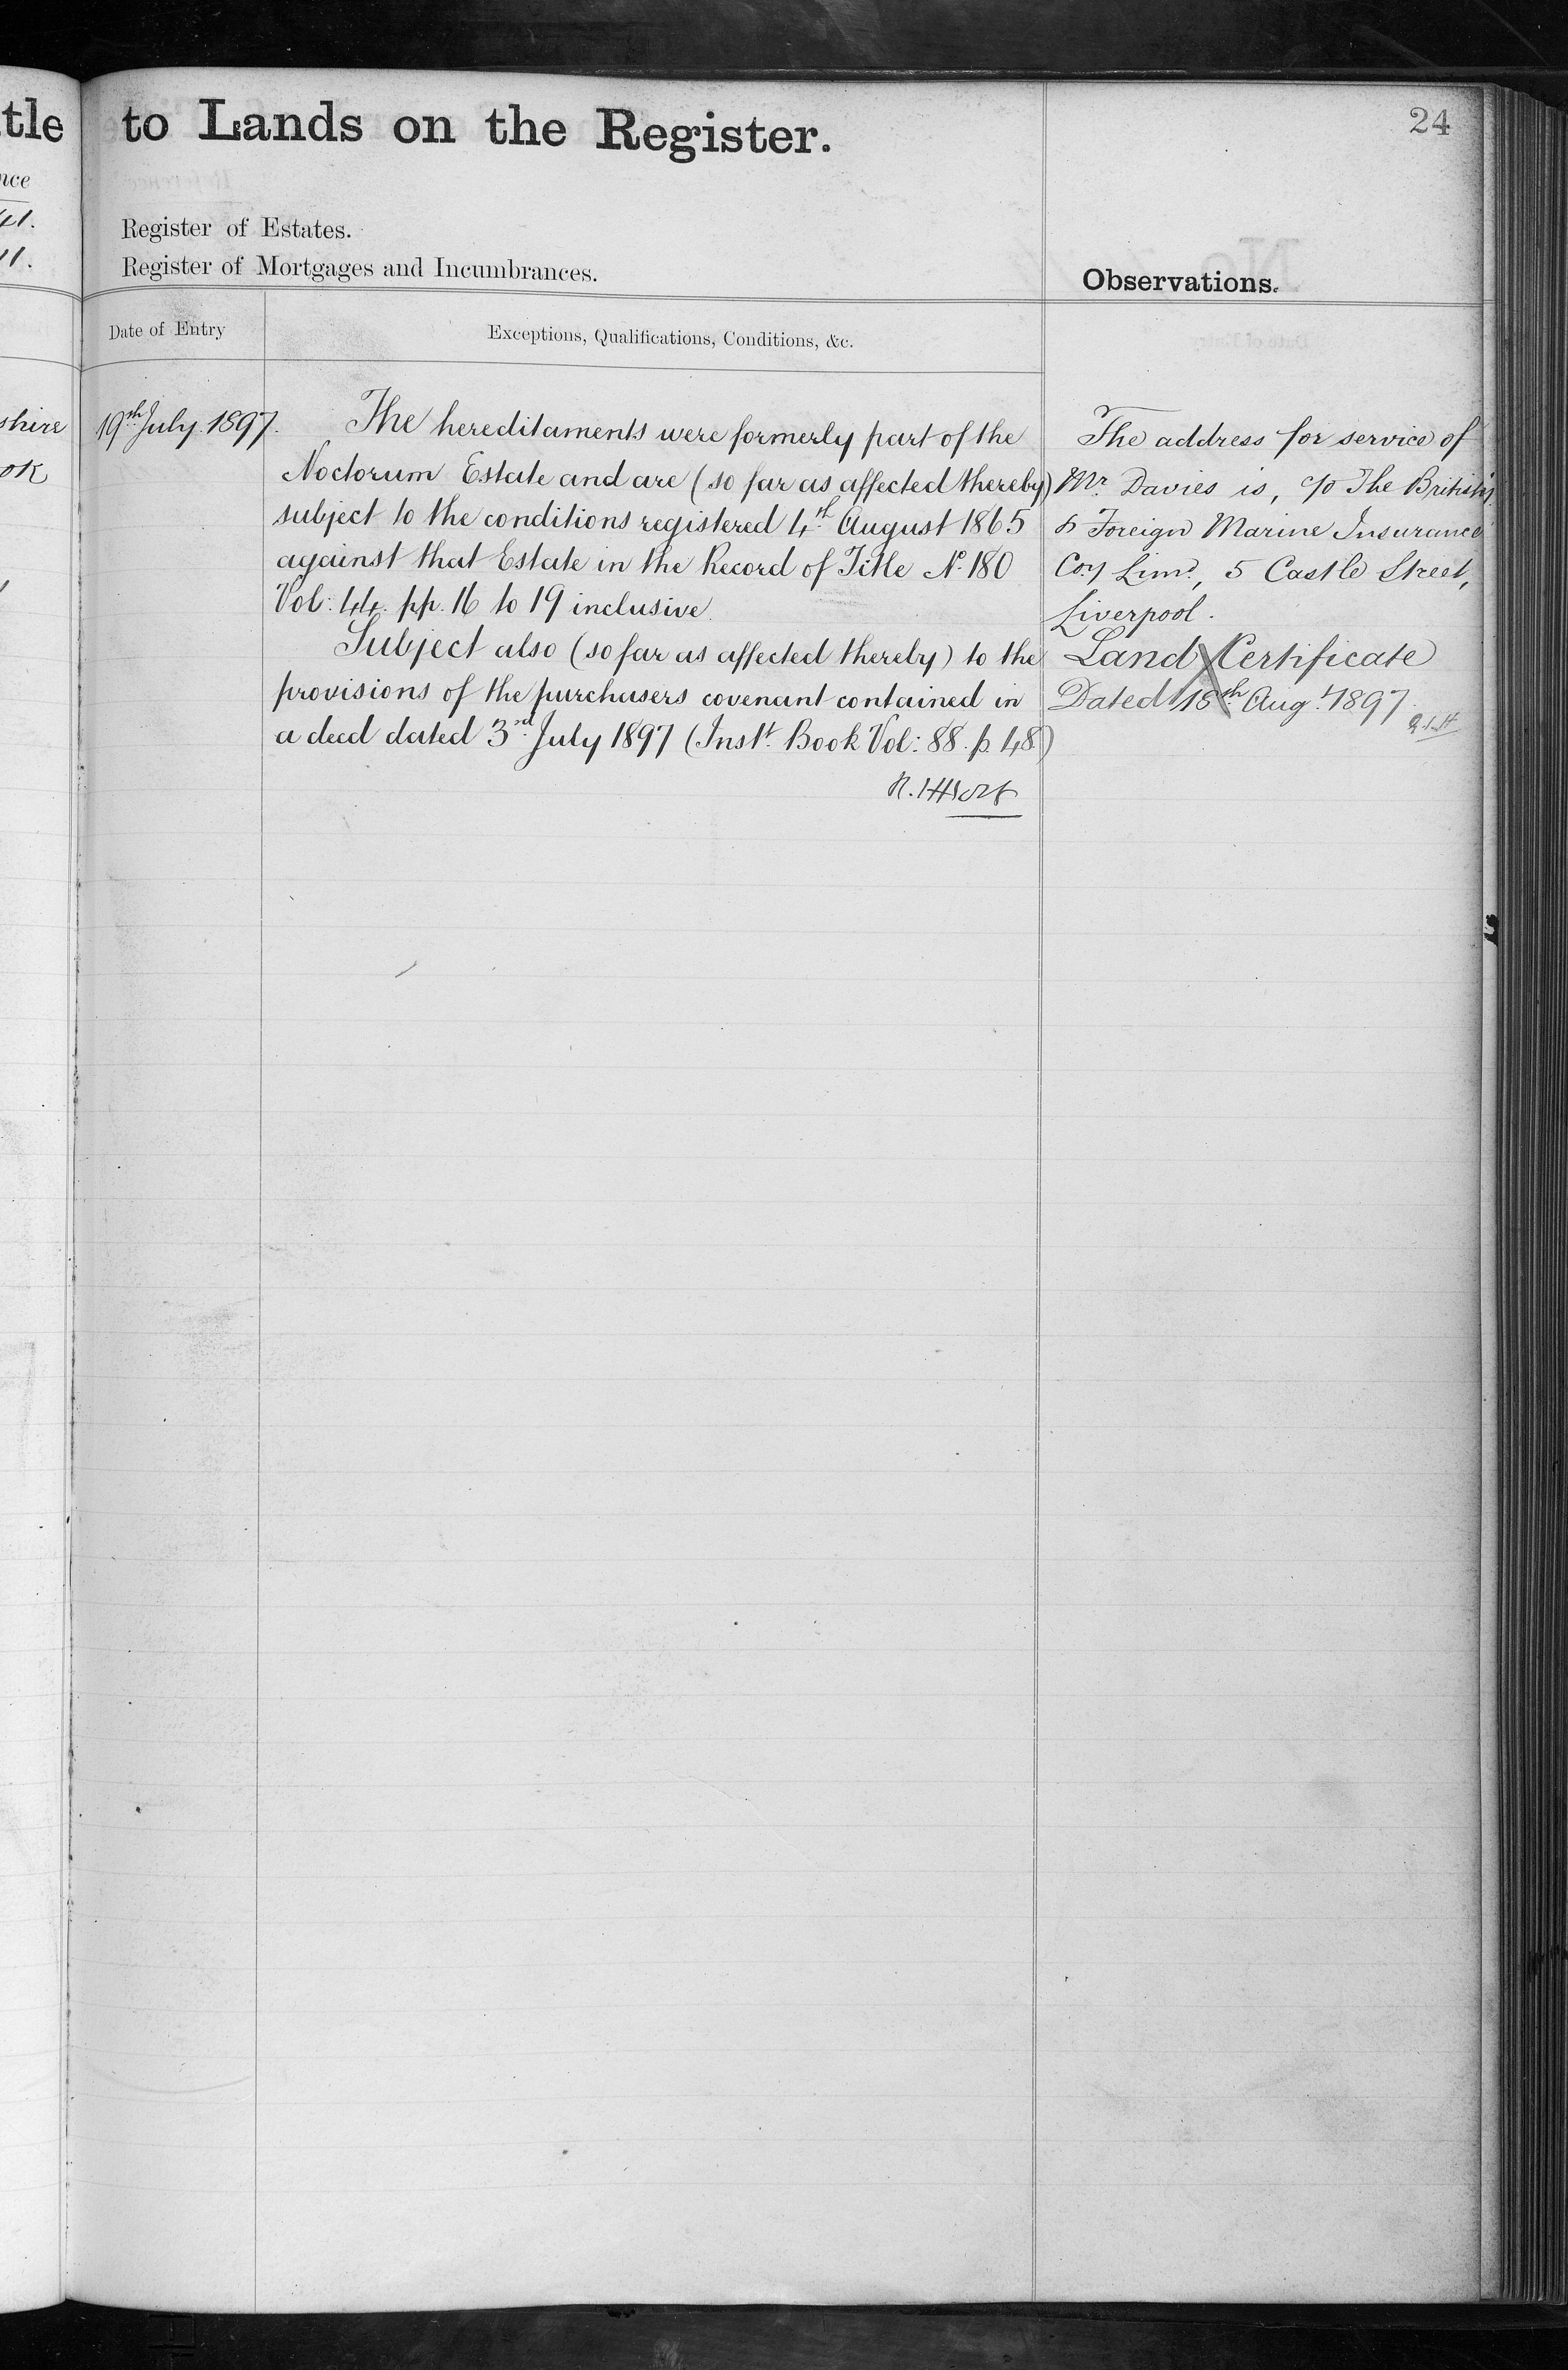 tle to Lands on the Register.
24
nce
41.
11.
Register of Estates.
Register of Mortgages and Incumbrances.
Observations.
Date of Entry
Exceptions, Qualifications, Conditions, &c.
shire
ok
19th July. 1897.
The hereditaments were formerly part of the
Noctorum Estate and are (so far as affected thereby)
subject to the conditions registered 4th August 1865
against that Estate in the Record of Title No. 180
Vol: 44. pp. 16 to 19 inclusive.
Subject also (so far as affected thereby) to the
provisions of the purchasers covenant contained in
a deed dated 3rd July 1897 (Instt. Book Vol: 88. p. 48)
The address for service of
Mr. Davies is, c/o The British
& Foreign Marine Insurance
Coy Limd., 5 Castle Street,
Liverpool.
Land Certificate
Dated 18th Augt. 1897.